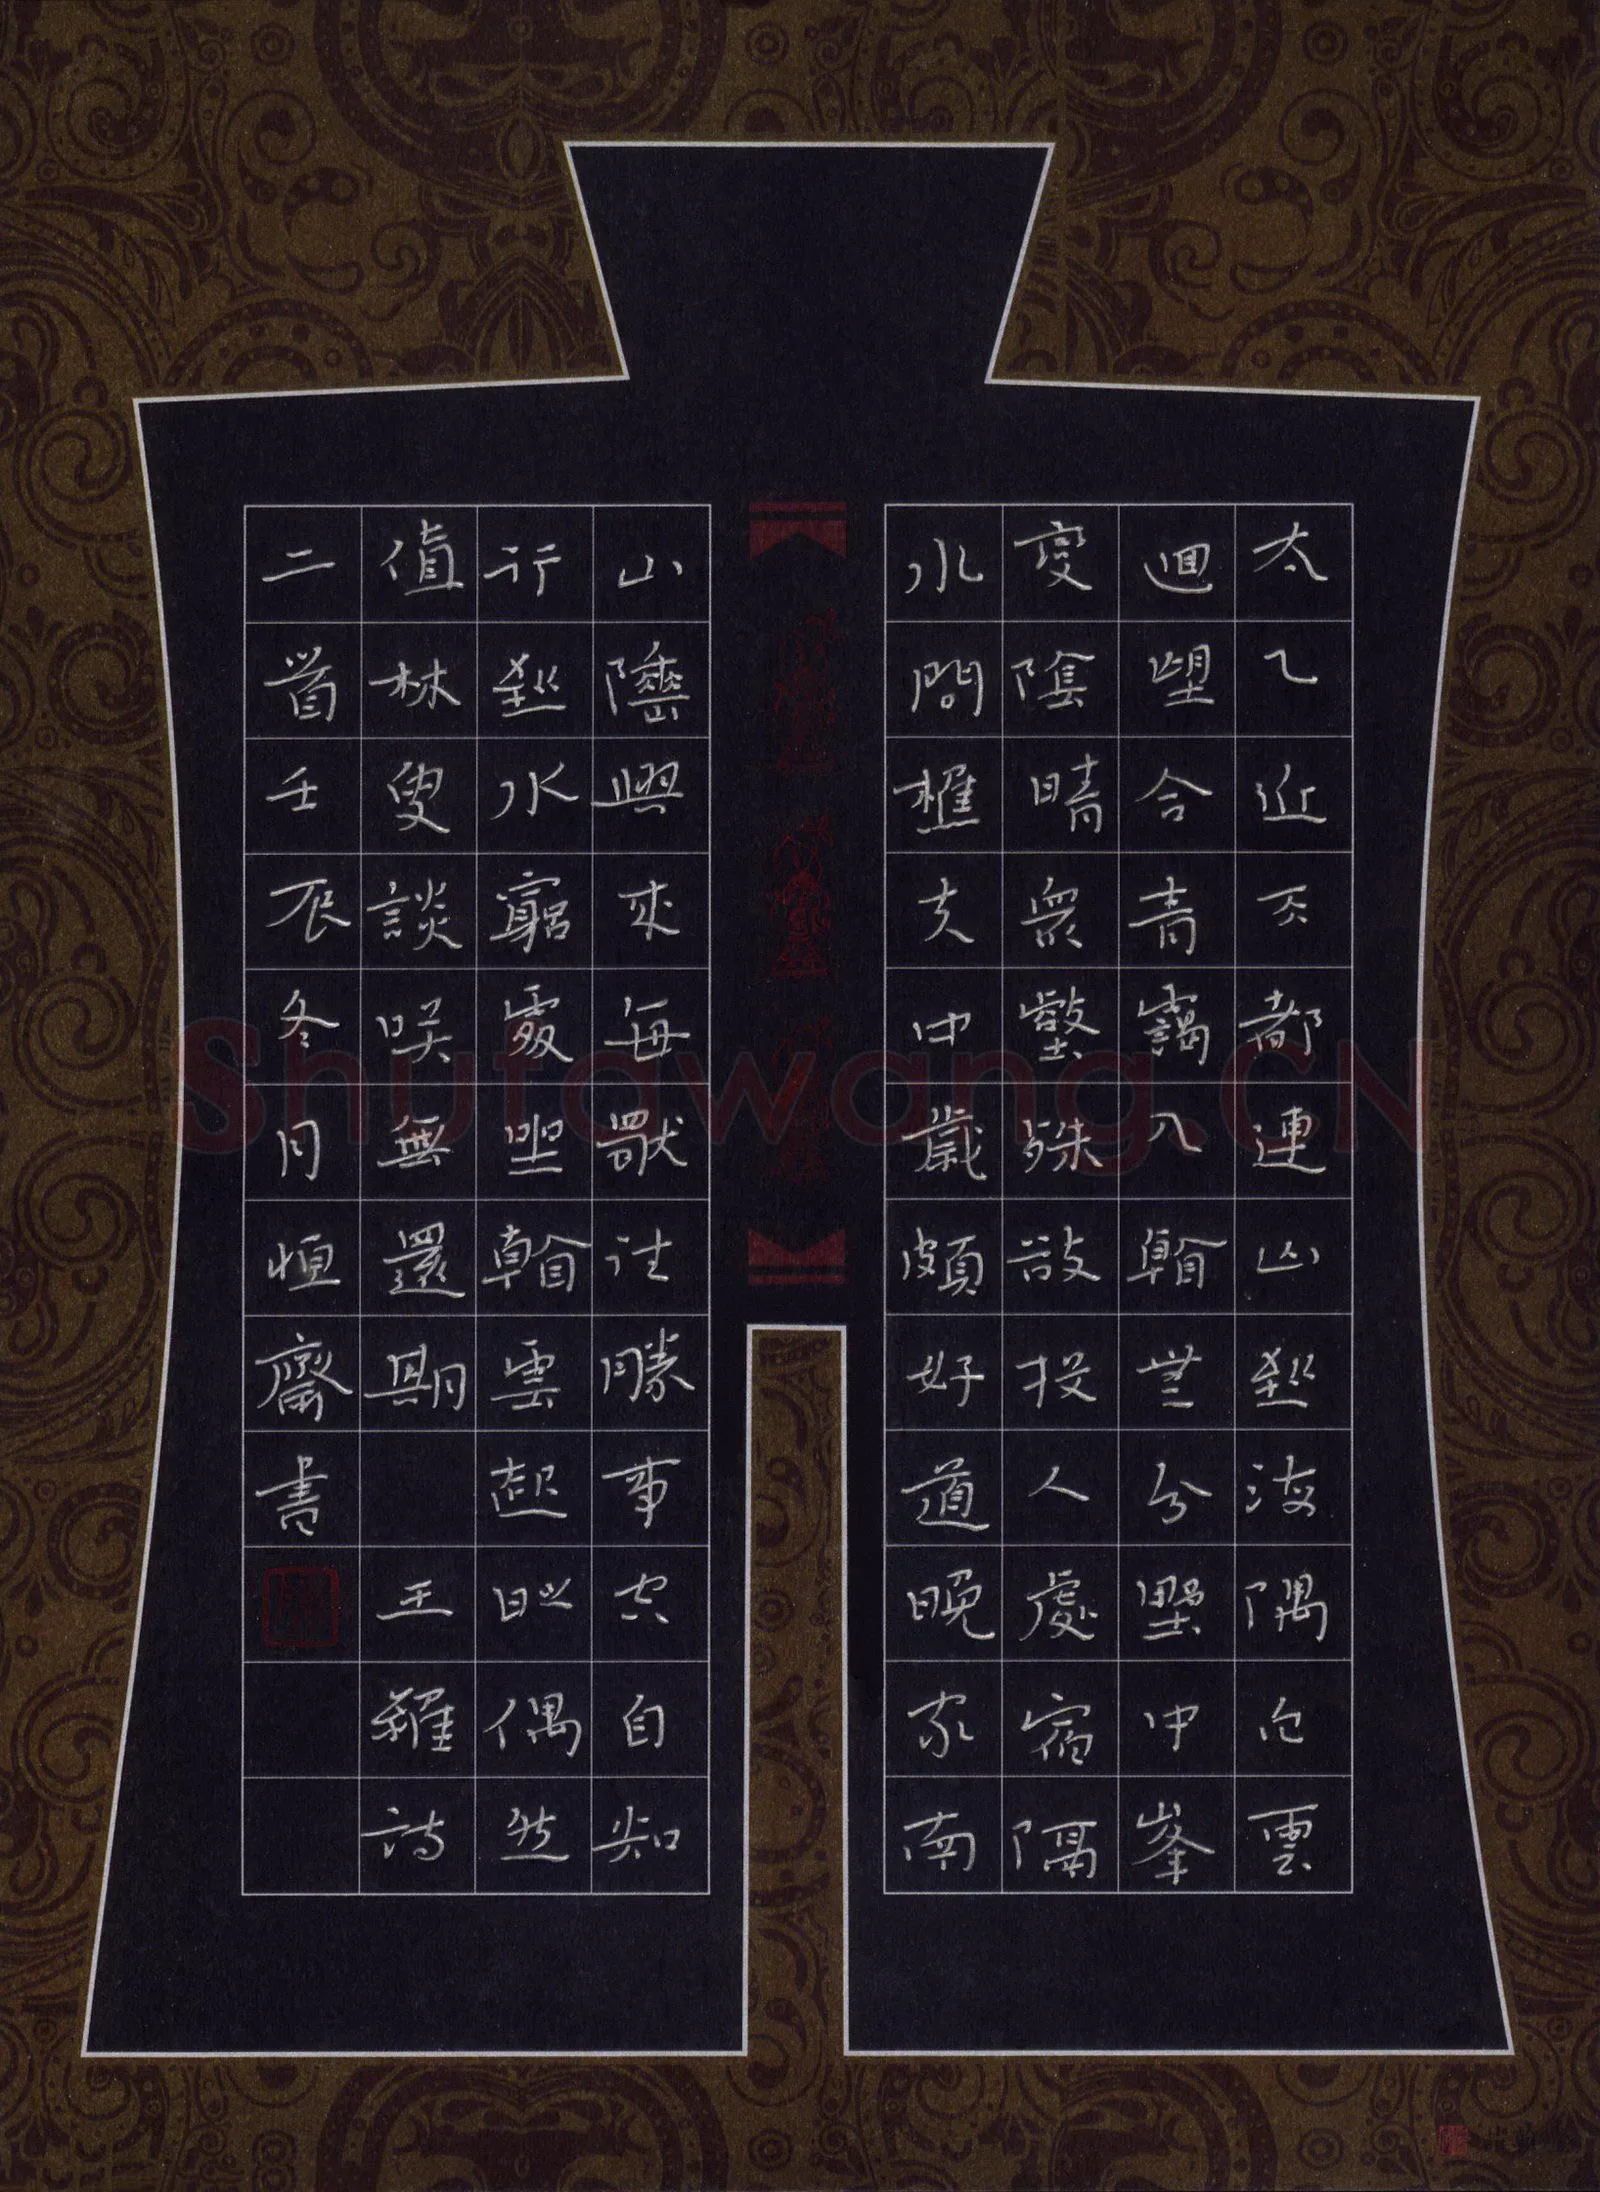 太乙近天都連山到海隅白雲
迴望合青靄入看無分野中峯
變陰晴衆壑殊欲投人處宿隔
水問樵夫中歲頗好道晚家南
山陲興來每獨往勝事空自知
行到水窮處坐看雲起時偶然
值林叟談咲無還期 王維詩
二首壬辰冬月恒齋書
Shufawang.CN